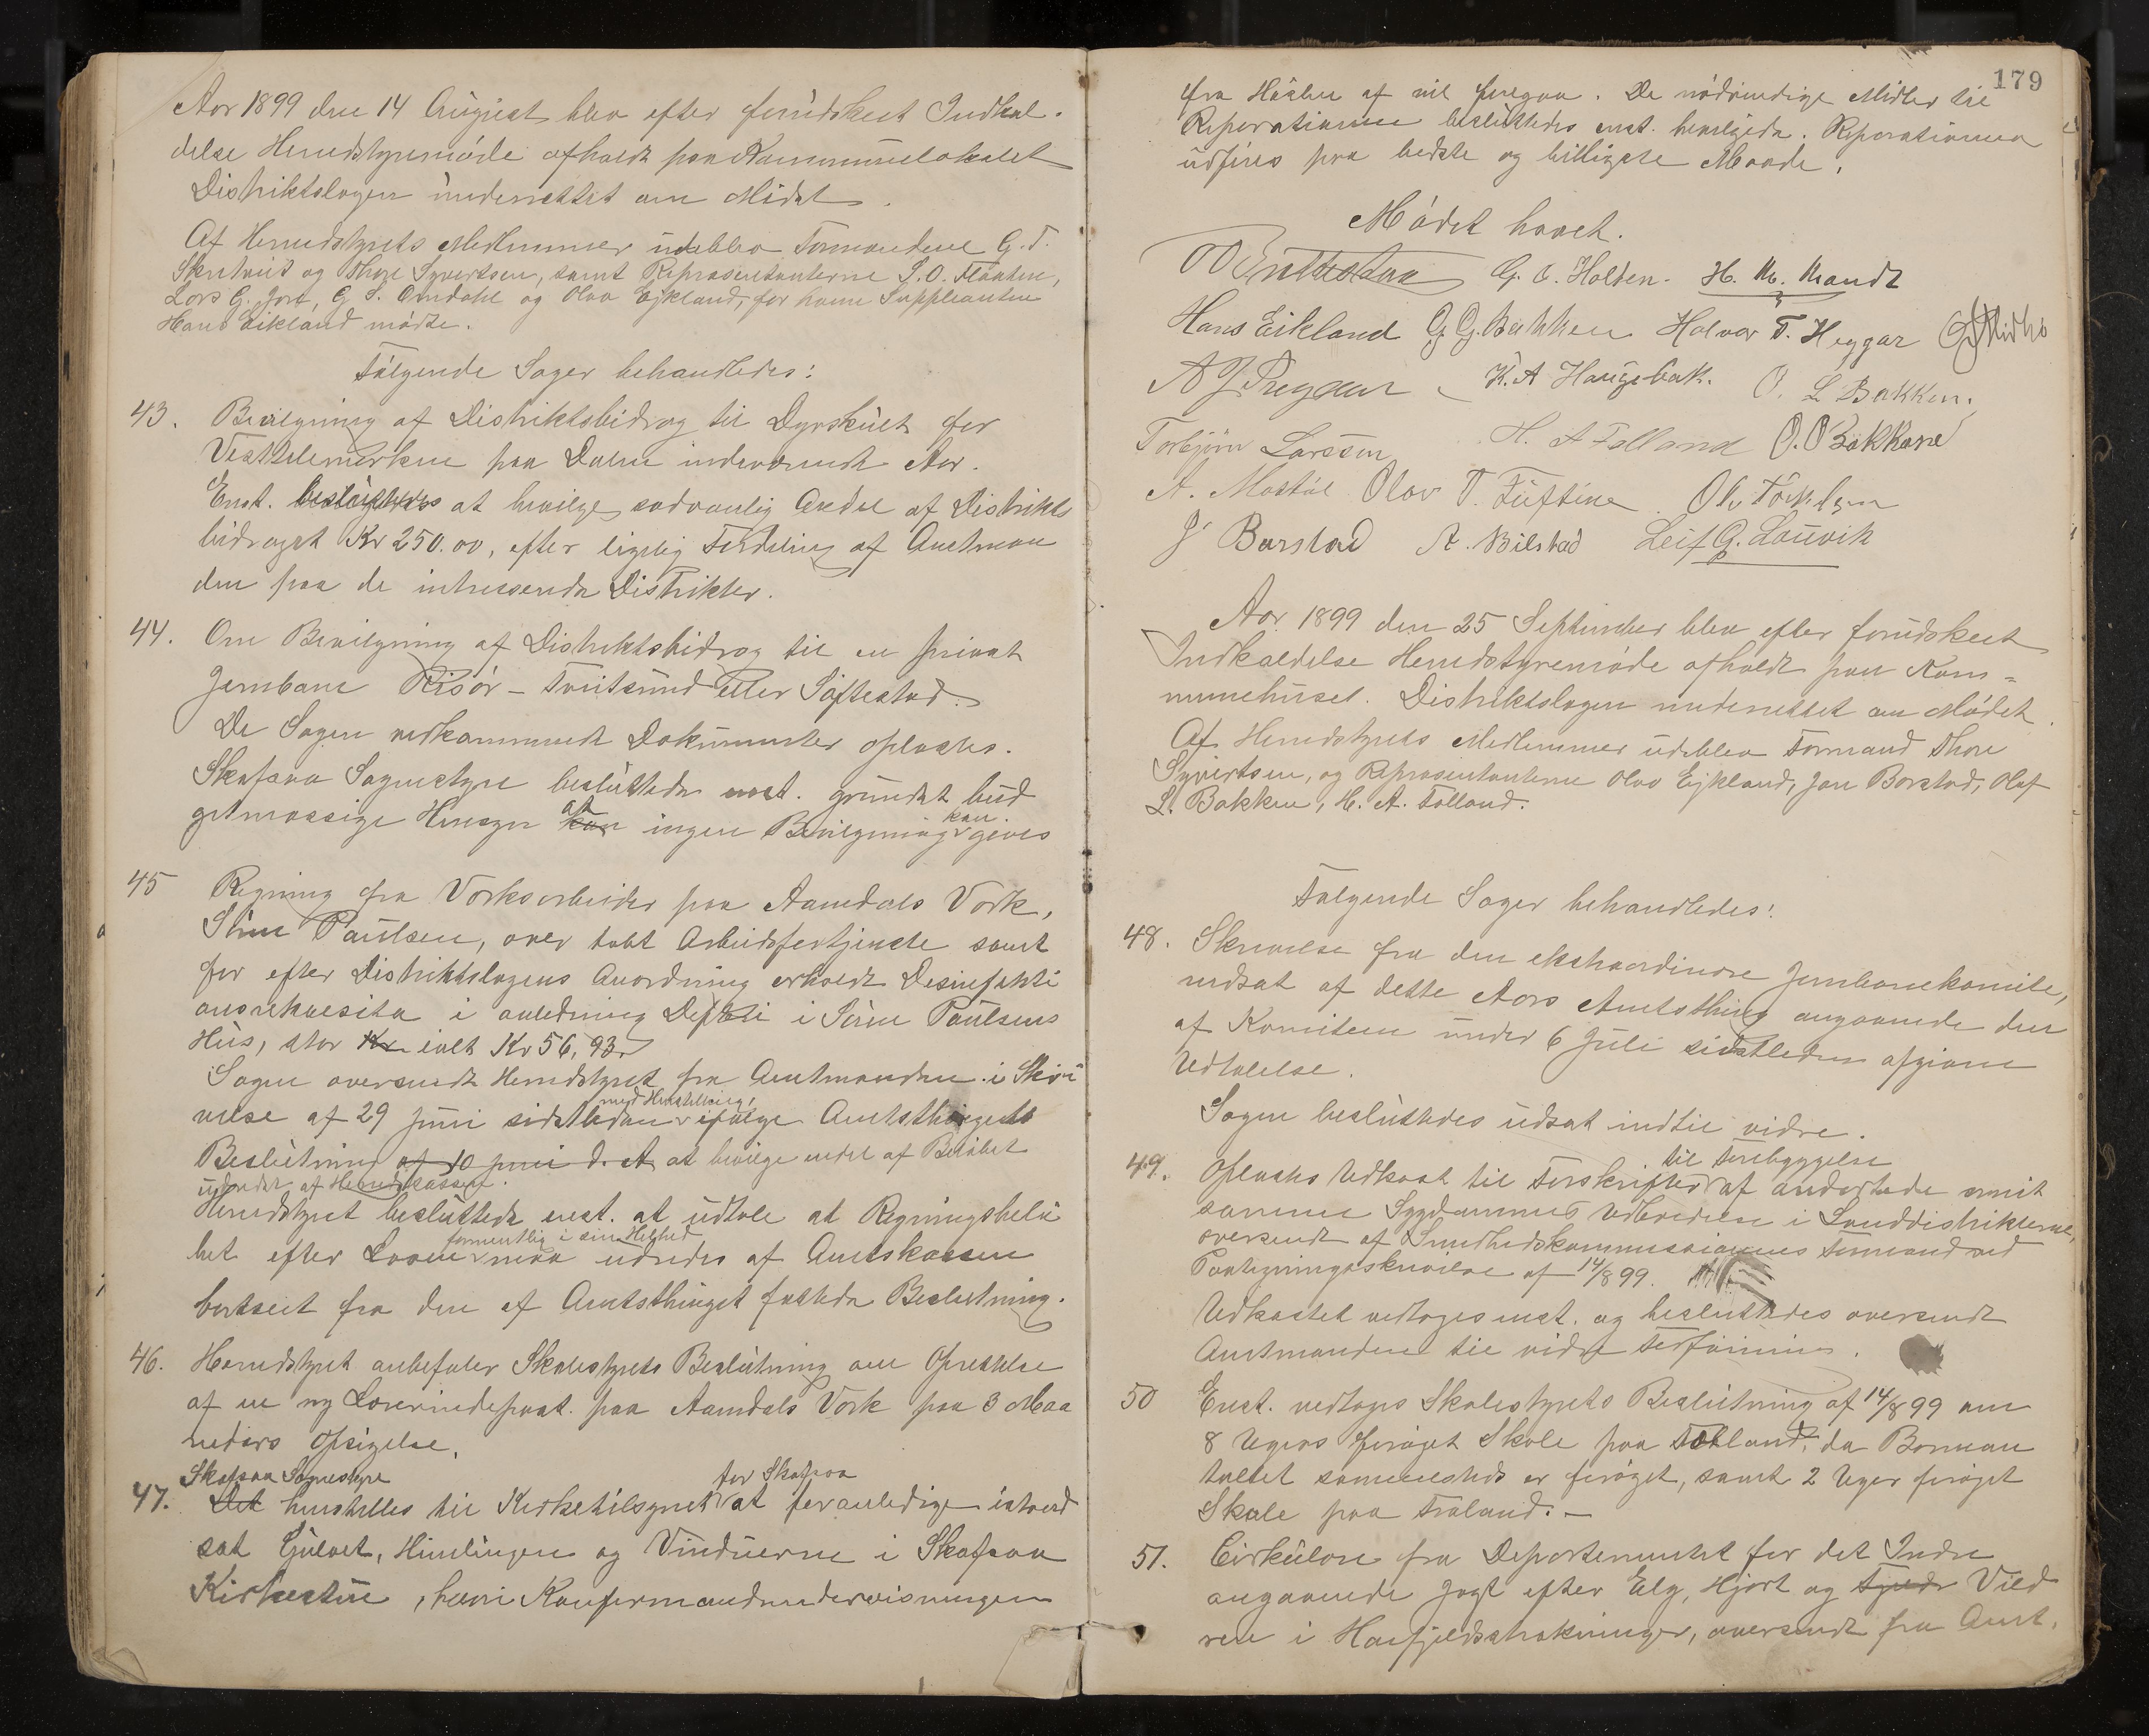 Aar 1899 den 14 August blev efter forudskeet Indkal-
delse Herredstyremøde afholdt paa Kommunelokalet
Distriktslægen underrettet om Mødet.
Af Herredstyrets Medlemmer udeblev Formændene G. T.
og Thore Syvertsen, samt Repræsentanterne S. O. Flaaten,
Lars G. Jore, G. S. Omdahl og Olav Eikland, for hvem Suppleanten
Hans Eikland mødte.
Følgende Sager behandledes:
43. Bevilgning af Distriktsbidrag til Dyrskuet for
Vesttelemarken paa Dalen indeværende Aar.
Enst. besluttedes at bevilge sædvanlig Andel af Distrikts
bidraget Kr 250.00, efter ligelig Fordeling af Amtman
den paa de intresserede Distrikter.
44. Om Bevilgning af Distriktsbidrag til en privat
Jernbane Risør – Treitsund eller Søftestad.
De Sagen vedkommende Dokumenter oplæstes.
Skafsaa Sognestyre besluttede enst. grundet bud
getmæssige Hensyn at ingen Bevilgning kan gives
45 Regning fra Værksarbeider paa Aamdals Værk,
Paulsen, over tabt Arbeidsfortjeneste samt
for efter Distriktslægens Anordning erholdt Desinfekti
onsrekvesita i anledning Difteri i Paulsens
Hus, stor Kr ialt Kr 56,93.
Sagen oversendt Herredstyret fra Amtmanden i Skri
velse af 29 Juni sidstleden med Henstilling, ifølge Amtsthingets
Beslutning af 10 juni d. A at bevilge endel af Beløbet
udredet af Herredskassen.
Herredstyret besluttede enst. at udtale at Regningsbelø
bet efter Loven formentlig i sin Helhed maa udredes af Amtskassen
bortseet fra den af Amtsthinget fattede Beslutning.
46. Herredstyret anbefaler Skolestyrets Beslutning om Oprettelse
af en ny Lærerindepost paa Aamdals Værk paa 3 Maa
neders Opsigelse.
Skafsaa Sognestyre for Skafsaa
47. Det henstilles til Kirketilsynet at foranledige istand
sat Gulvet, Himlingen og Vinduerne i Skafsaa
Kirkestue, hvori Konfirmandundervisningen
179
fra Høsten af vil foregaa. De nødvendige Midler til
Reparationen besluttedes enst. bevilgede. Reparationen
udføres paa bedste og billigste Maade.
Mødet hævet.
G. O. Holten. H. M. Mandt
Hans Eikland G. G. Bakken Halvor T. Heggar
K. A Haugebak. O. L Bakken.
Torbjørn Larssen H. A Folland O. O Bakkane
A. Mostøl Olav T. Tuftine Olv Torkelsen
J Barstad A. Bilstad Leif G. Lauvik
Aar 1899 den 25 September blev efter forudskeet
Indkaldelse Herredstyremøde afholdt paa Kom=
munehuset. Distriktslægen underrettet om Mødet.
Af Herredstyrets Medlemmer udeblev Formand Thore
Syvertsen, og Repræsentanterne Olav Eikland, Jon Barstad, Olaf
L. Bakken, H. A. Folland.
Følgende Sager behandledes:
48. Skrivelse fra den ekstraordinære Jernbanekomite,
nedsat af dette Aars Amtsthing angaaende den
af Komiteen under 6 Juli sidstleden afgivne
Udtalelse.
Sagen besluttedes udsat indtil videre.
til Forebyggelse
49. Oplæstes Udkast til Forskrifter af ondartede smit
somme Sygdommes Udbredelse i Landdistrikterne,
oversendt af Sundhedskommissionens Formand ved
Paategningsskrivelse af 14/8 99.
Udkastet vedtoges enst. og besluttedes oversendt
Amtmanden til videre Befordring.
50 Enst. vedtoges Skolestyrets Beslutning af 14/8 99 om
8 Ugers forøget Skole paa Folland, da Børnean
tallet sammesteds er forøget, samt 2 Uger forøget
Skole paa Traland. –
51. Cirkulære fra Departementet for det Indre
angaaende Jagt efter Elg, Hjort og Vild
ren i Høifjeldsstrækninger, oversendt fra Amt.